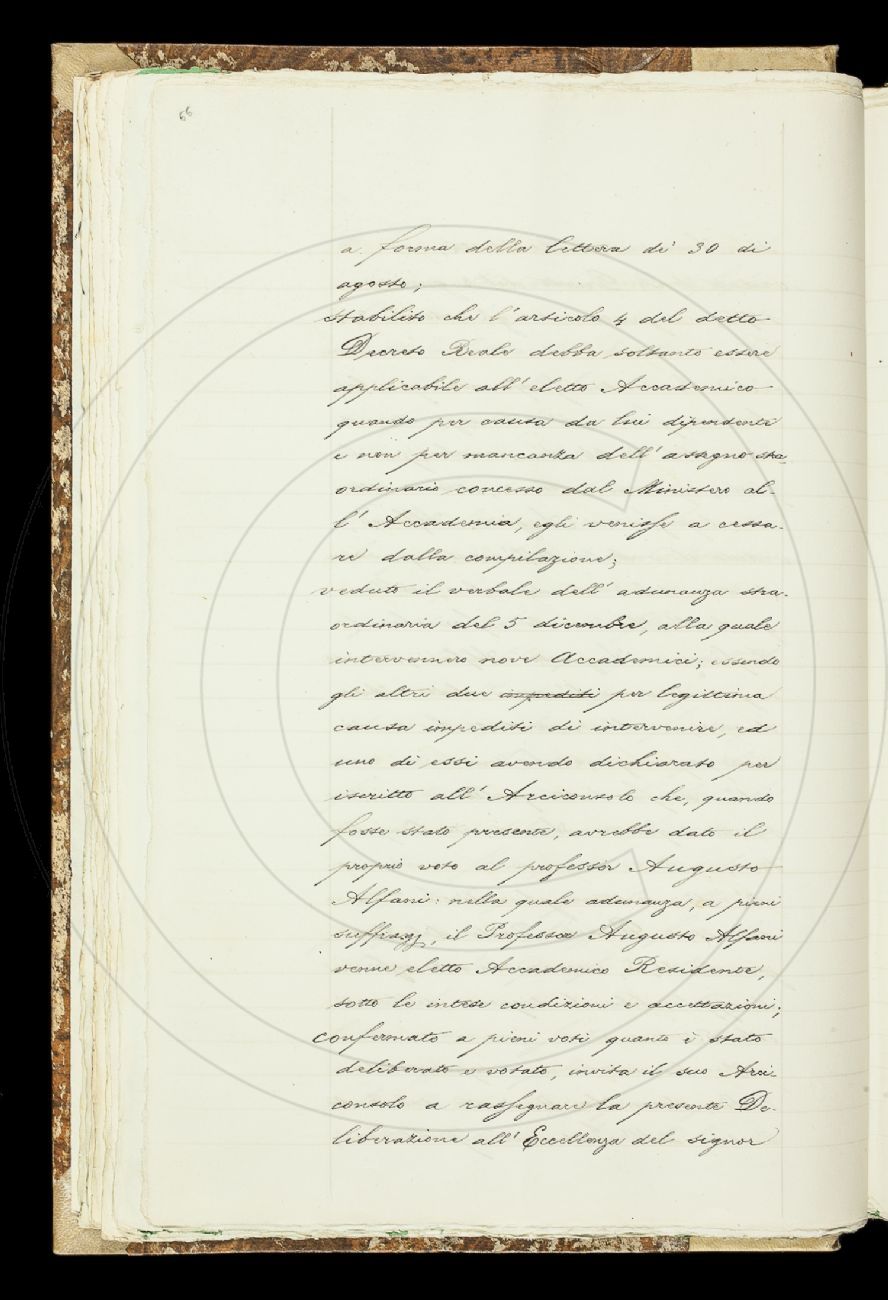 66
a forma della lettera di' 30 di
agosto;
stabilito che l'articolo 4 del detto
Decreto Reale debba soltanto essere
applicabile all'eletto Accademico
quando per causa da lui dipendente
e non per mancanza dell'assegno stra-
ordinario concesso dal Ministero al-
l'Accademia, egli venisse a cessa-
re dalla compilazione;
veduto il verbale dell'adunanza stra-
ordinaria del 5 dicembre, alla quale
intervennero nove Accademici; essendo
gli altri due impediti per legittima
causa impediti di intervenire, ed
uno di essi avendo dichiarato per
iscritto all'Arciconsolo che, quando
fosse stato presente, avrebbe dato il
proprio voto al professor Augusto
Alfani: nella quale adunanza, a pieni
suffragj, il Professor Augusto Alfani
venne eletto Accademico Residente,
sotto le intese condizioni e accettazioni;
confermato a pieni voti quanto è stato
deliberato e votato, invita il suo Arci-
consolo a rassegnare la presente De-
liberazione all'Eccellenza del signor